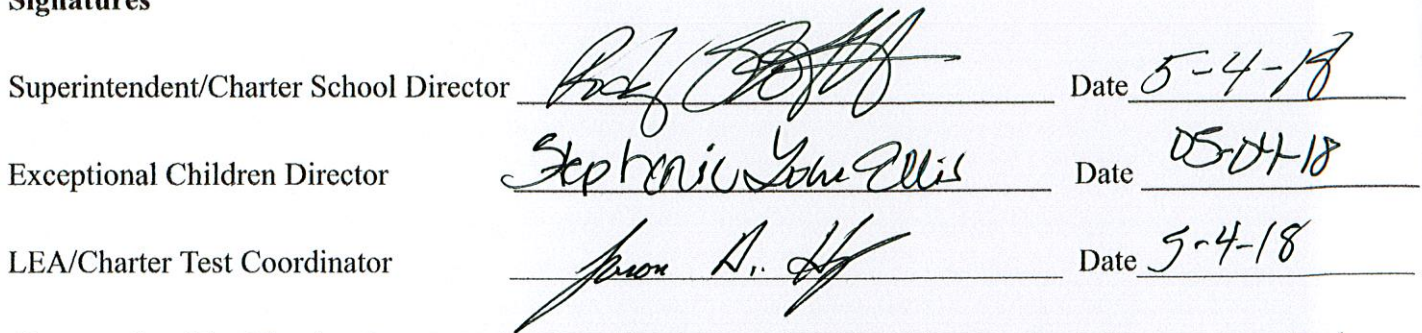 Signatures
Superintendent/Charter School Director Date 5-4-18
Exceptional Children Director Stephanie Lowe Ellis Date 05-04-18
LEA/Charter Test Coordinator Jason A. Date 5-4-18